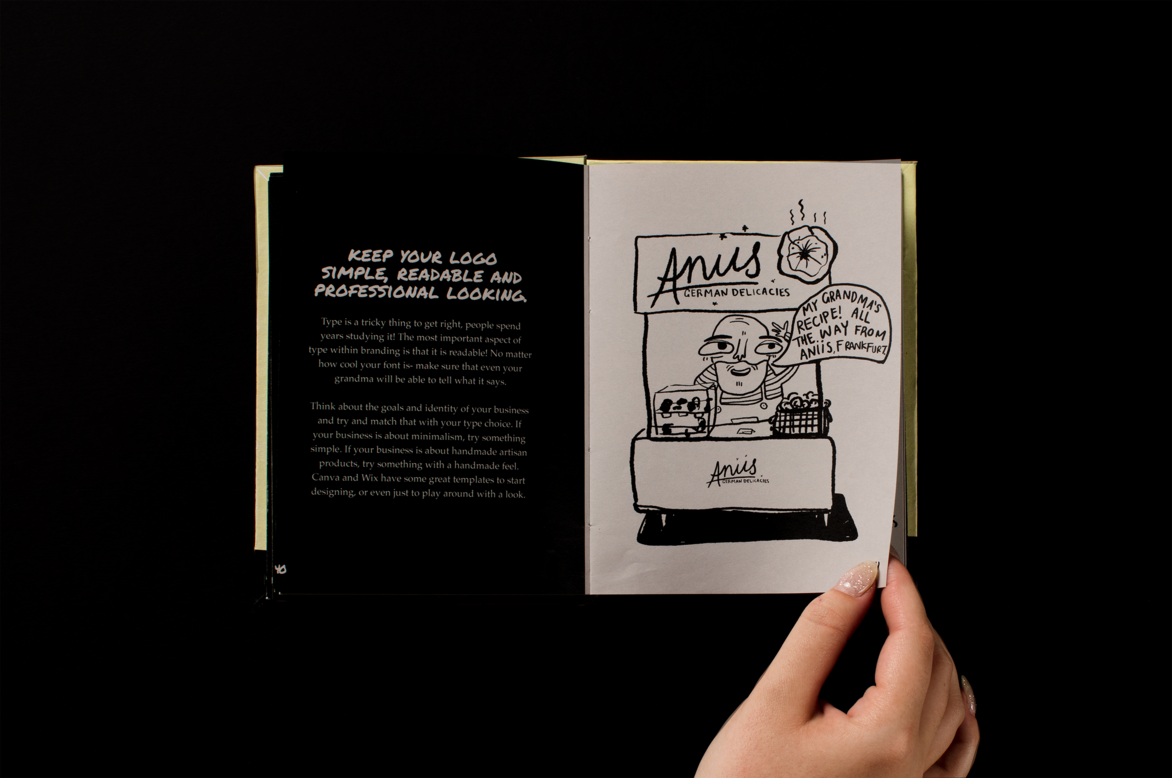 KEEP YOUR LOGO
SIMPLE, READABLE AND
PROFESSIONAL LOOKING.
Type is a tricky thing to get right, people spend
years studying it! The most important aspect of
type within branding is that it is readable! No matter
how cool your font is- make sure that even your
grandma will be able to tell what it says.
Think about the goals and identity of your business
and try and match that with your type choice. If
your business is about minimalism, try something
simple. If your business is about handmade artisan
products, try something with a handmade feel.
Canva and Wix have some great templates to start
designing, or even just to play around with a look.
40
Aniis
GERMAN DELICACIES
MY GRANDMA'S
RECIPE! ALL
THE WAY FROM
ANiiS, FRANKFURT
Aniis
GERMAN DELICACIES